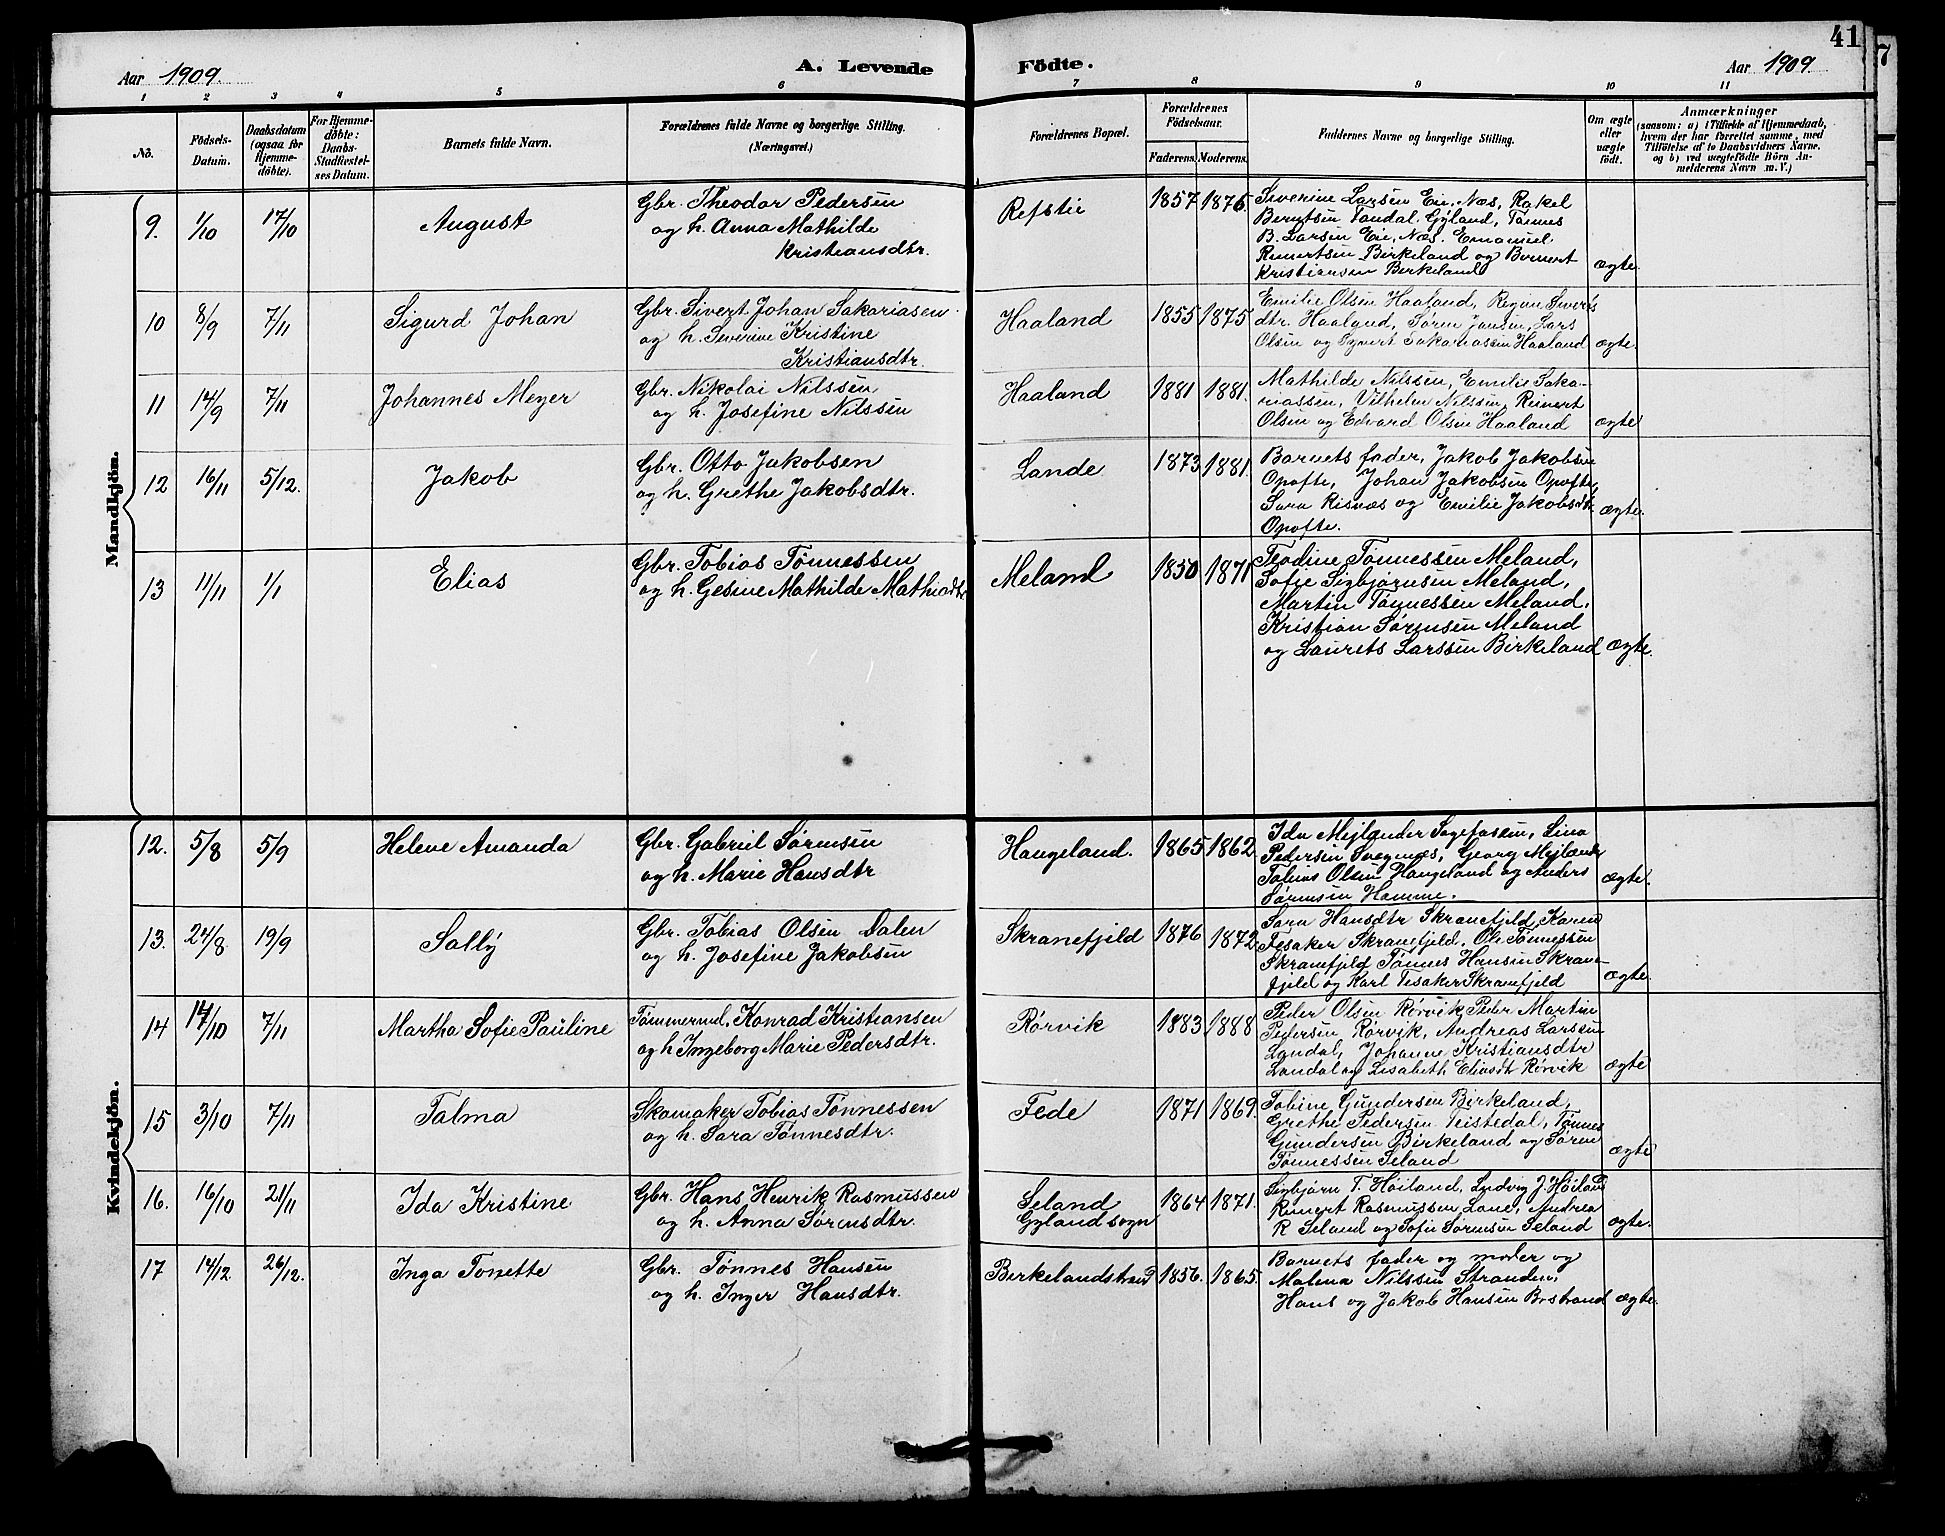 41
7
Aar 1909.
A. Levende
Födte.
Aar 1909
1 2 3 4 5 6 7 8 9 10 11
No.
Födsels-
Datum.
Daabsdatum
(ogsaa for
Hjemme-
döbte).
For Hjemme-
döbte:
Daabs-
Stadfæstel-
ses Datum.
Barnets fulde Navn.
Forældrenes fulde Navne og borgerlige Stilling.
(Næringsvei.)
Forældrenes Bopæl.
Forældrenes
Födselsaar.
Faderens. Moderens.
Faddernes Navne og borgerlige Stilling.
Om ægte
eller
uægte
födt.
Anmærkninger
(saasom: a) i Tilfælde af Hjemmedaab,
hvem der har forrettet samme, med
Tilföielse af to Daabsvidners Navne.
og b) ved uægtefödte Börn An-
melderens Navn m. V.)
Mandkjön.
9. 1/10 17/10 August
Gbr. Theodor Pedersen
og h. Anna Mathilde
Kristiansdtr.
Refstie 1857 1876.
Severine Larsen Eie, Næs, Rakel
Berntsen Tandal, Gyland, Tønnes
B. Larsen Eie, Næs. Emanuel
Reinertsen Birkeland og Bernert
Kristiansen Birkeland
ægte.
10 8/9 7/11 Sigurd Johan
Gbr. Sivert Johan Sakariasen
og h. Severine Kristine
Kristiansdtr.
Haaland 1855 1875
Emilie Olsen Haaland, Regine Siverts
dtr. Haaland, Søren Jansen, Lars
Olsen og Syvert Sakariassen Haaland
ægte.
11 14/9 7/11 Johannes Meyer
Gbr. Nikolai Nilssen
og h. Josefine Nilssen
Haaland 1881 1881.
Mathilde Nilssen, Emilie Saka-
riassen, Vilhelm Nilssen, Reinert
Olsen og Edvard Olsen Haaland
ægte
12 16/11 5/12. Jakob
Gbr. Otto Jakobsen
og h. Grethe Jakobsdtr.
Lande 1873 1881.
Barnets fader, Jakob Jakobsen
Opofte, Johan Jakobsen Opofte,
Sara Risnæs og Emilie Jakobsdtr.
Opofte.
ægte.
13 11/11 1/1 Elias
Gbr. Tobias Tønnessen
og h. Gesine Mathilde Mathiasdtr
Meland 1850 1871
Teodine Tønnessen Meland,
Sofie Sigbjørnsen Meland,
Martin Tønnessen Meland.
Kristian Sørensen Meland
og Laurets Larssen Birkeland
ægte.
Kvindekjön.
12. 5/8 5/9 Helene Amanda
Gbr. Gabriel Sørensen
og h. Marie Hansdtr
Haugeland. 1865 1862.
Ida Mejlænder Sagefossen, Lina
Pedersen Svegenæs, Georg Mejlænder
Tobias Olsen Haugeland og Anders
Sørensen Hamme.
ægte.
13. 24/8 19/9 Sally
Gbr. Tobias Olsen Dalen
og h. Josefine Jakobsen
Skranefjeld 1876 1872.
Sara Hansdtr Skranefjeld, Karen
Tesaker Skranefjeld. Ole Tønnessen
Skranefjeld Tønnes Hansen Skrane-
fjeld og Karl Tesaker Skranefjeld
ægte.
14 14/10 7/11 Martha Sofie Pauline
Tømmermd. Konrad Kristiansen
og h Ingeborg Marie Pedersdtr.
Rørvik 1883 1888.
Peder Olsen Rørvik, Peder Martin
Pedersen Rørvik, Andreas Larssen
Landal, Johanne Kristiansdtr
Landal og Lisabeth Eliasdtr Rørvik
ægte
15 3/10 7/11 Talma
Skomaker Tobias Tønnessen
og h. Sara Tønnesdtr.
Fede 1871 1869.
Tobine Gundersen Birkeland,
Grethe Pedersen Teistedal, Tønnes
Gundersen Birkeland og Søren
Tønnessen Seland
ægte
16. 16/10 21/11 Ida Kristine
Gbr. Hans Henrik Rasmussen
og h. Anna Sørensdtr.
Seland
Gyland sogn
1864 1871.
Sigbjørn T. Høiland, Ludvig J Høiland
Reinert Rasmussen Lone, Andrea
R Seland og Sofie Sørensen Seland
ægte.
17 14/12 26/12. Inga Tonette
Gbr. Tønnes Hansen
og h. Inger Hansdtr.
Birkelandstrand 1856. 1865.
Barnets fader og moder og
Malena Nilssen Stranden,
Hans og Jakob Hansen B.strand
ægte.